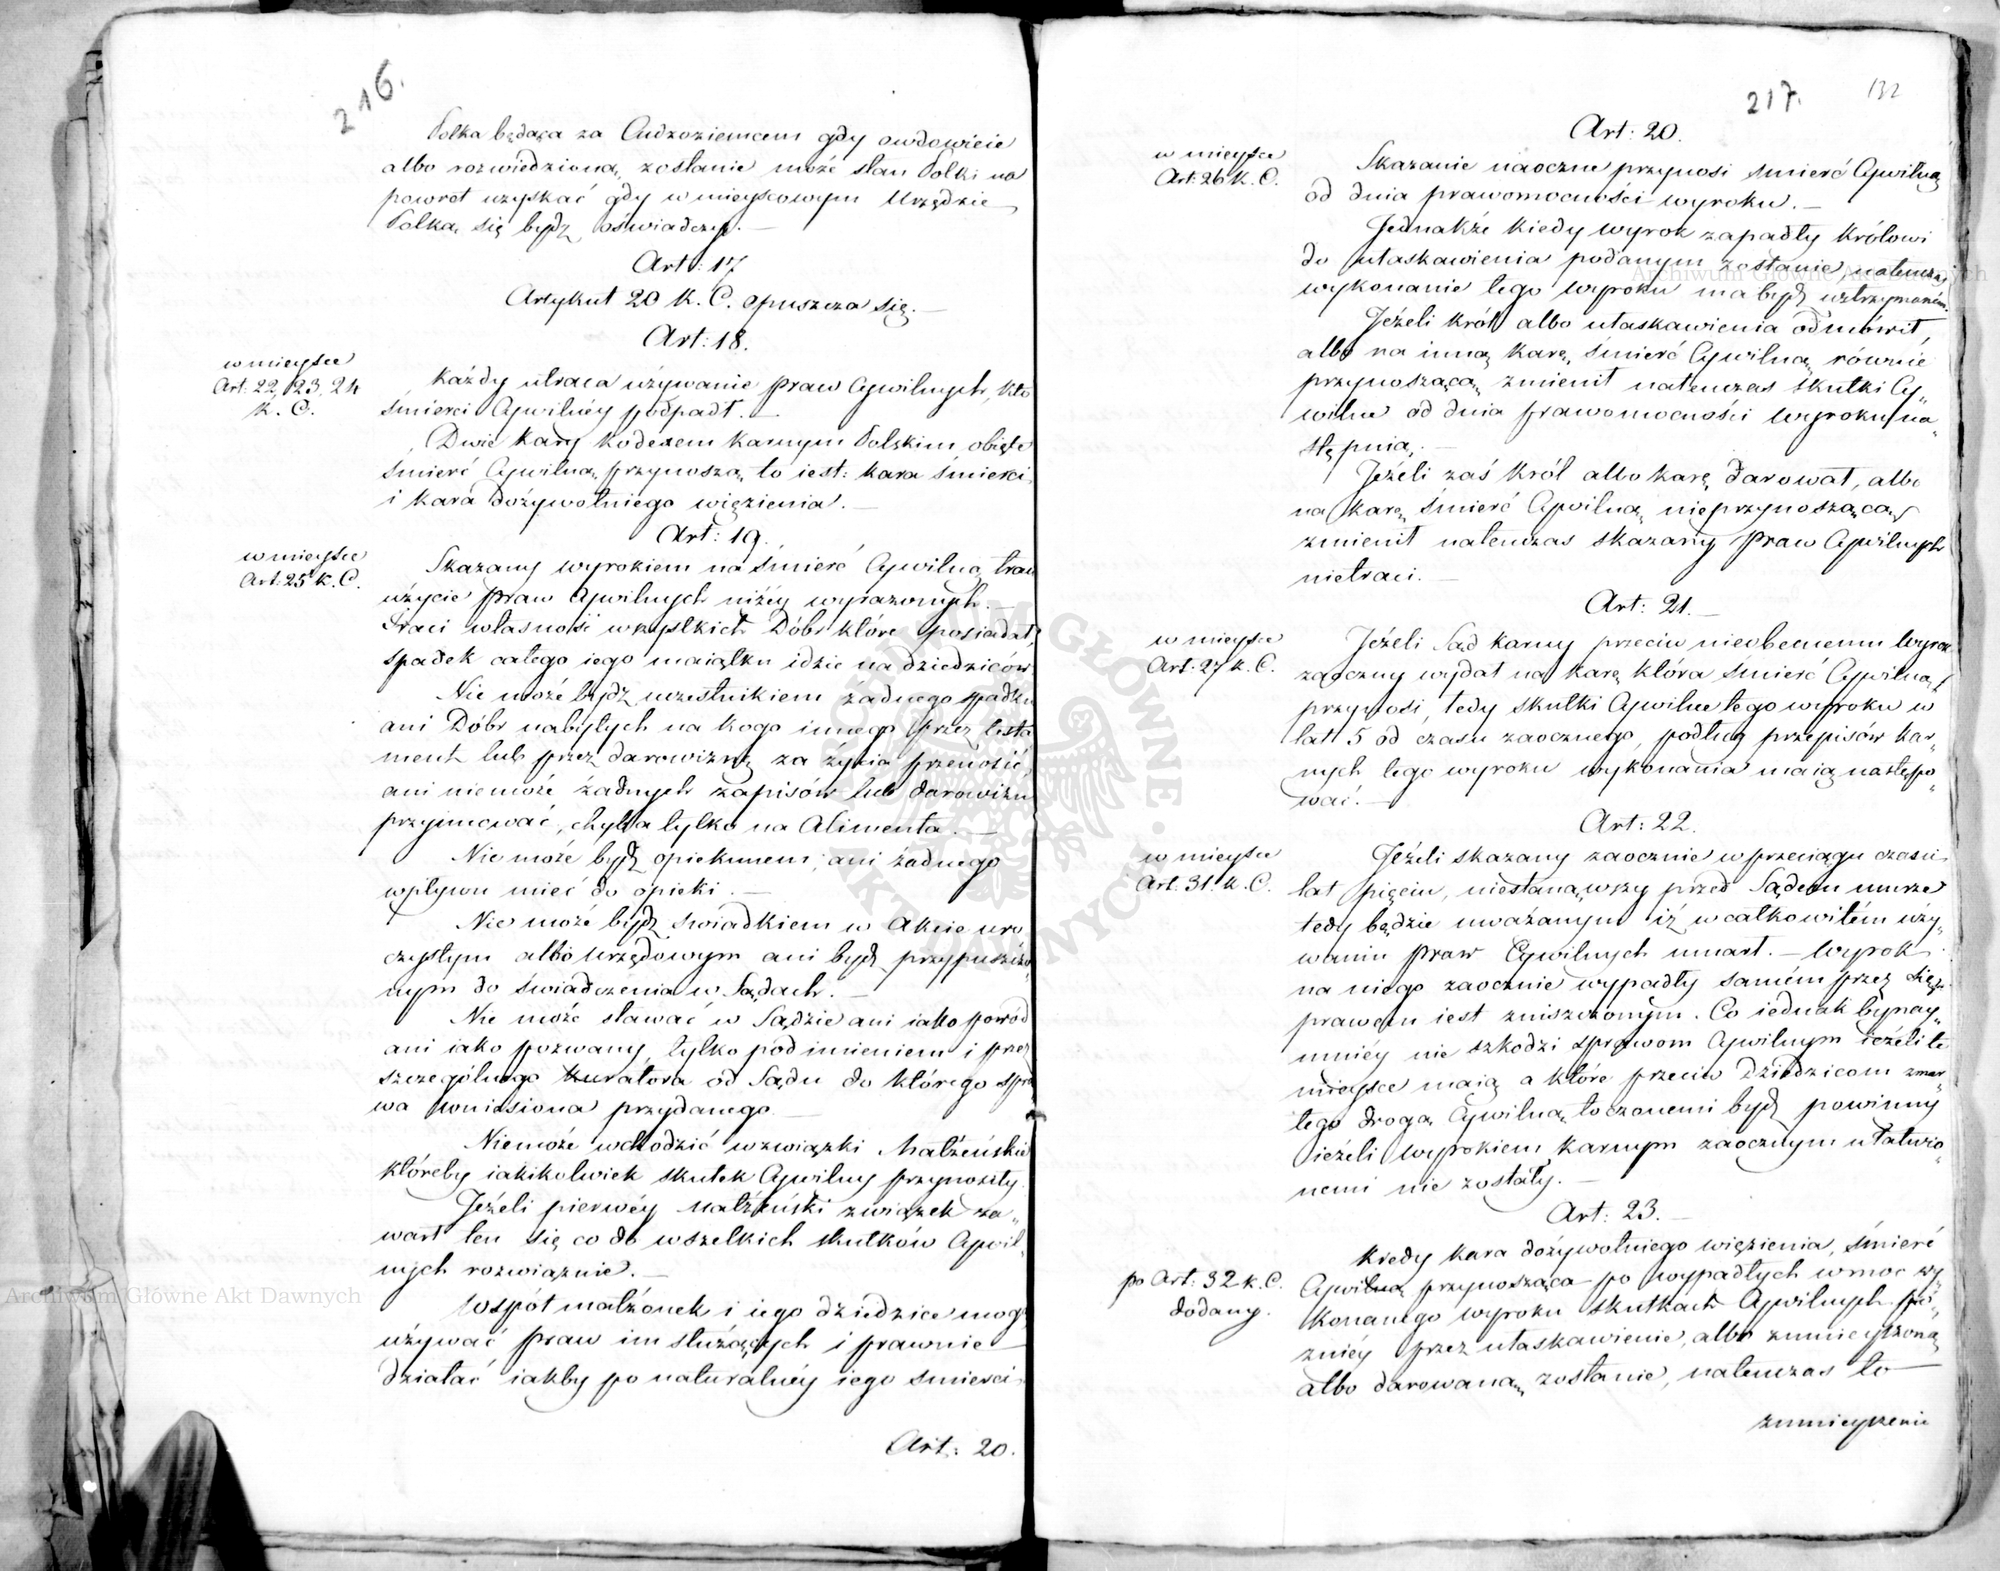 216.
Polka będąca za Cudzoziemcem gdy owdowieie
albo rozwiedzioną zostanie może stan Polki na
powrot uzyskać gdy w mieyscowym Urzędzie
Polką się bydź oświadczy. —
Art: 17
Artykuł 20 K. C. opuszcza się. —
Art: 18.
w mieysce
Art. 22, 23, 24
K. C.
Każdy utraca używanie praw Cywilnych, kto
śmierci Cywilnéy podpadł. —
Dwie kary kodexem karnym Polskim obięte
śmierć Cywilną przynoszą to iest: kara śmierci
i kara dożywotniego więzienia. —
Art: 19.
w mieysce
Art: 25 K. C.
Skazany wyrokiem na śmierć Cywilną traci
użycie praw Cywilnych niżéy wyrażonych. —
Traci własność wszystkich Dóbr które posiadał
spadek całego iego maiątku idzie na dziedziców
Nie może bydź uczestnikiem żadnego spadku
ani Dóbr nabytych na kogo innego przez testa
ment lub przez darowiznę za życia przenosić,
ani niemoże żadnych zapisów lub darowizn
przyimować, chyba tylko na Alimenta. —
Nie może bydź opiekunem, ani żadnego
wpływu mieć do opieki. —
Nie może bydź swiadkiem w Akcie uro
czystym albo urzędowym ani bydź przypuszczo
nym do świadczenia w Sądach. —
Nie może stawać w Sądzie ani iako powód
ani iako pozwany, tylko pod imieniem i przez
szczególnego kuratora od Sądu do którego spra
wa wniesiona przydanego. —
Niemoże wchodzić w związki Małżeńskie
któreby iakikolwiek skutek Cywilny przynosiły.
Jeżeli pierwéy małżeński związek za„
warł ten się co do wszelkich skutków Cywil„
nych rozwiąznie. —
Współmałżonek i iego dziedzice mogą
używać praw im służących i prawnie
działać iakby po naturalnéy iego smierci.
Art: 20.
217. 132
Art: 20.
w mieysce
Art: 26 K. C.
Skazanie naoczne przynosi śmierć Cywilną
od dnia prawomocności wyroku. —
Jednakże kiedy wyrok zapadły Królowi
do ułaskawienia podanym zostanie, natenczas
wykonanie tego wyroku ma bydź wstrzymaném.
Jeżeli król albo ułaskawienia odmówił,
albo na inną karę, śmierć Cywilną, równie
przynoszącą, zmienił natenczas skutki Cy„
wilne od dnia prawomocności wyroku na„
stępnią. —
Jeżeli zaś Król albo karę darował, albo
na karę śmierć Cywilną nieprzynoszącą,
zmienił natenczas skazany praw Cywilnych
nietraci. —
Art: 21. —
w mieysce
Art: 27 K. C.
Jeżeli Sąd karny przeciw nieobecnemu wyrok
zaoczny wydał na karę która śmierć Cywilną
przynosi, tedy skutki Cywilne tego wyroku w
lat 5 od czasu zaocznego, podług przepisów kar„
nych tego wyroku wykonania maią następo„
wać. —
Art: 22.
w mieysce
Art: 31. K. C.
Jeżeli skazany zaocznie w przeciągu czasu
lat pięciu, niestanąwszy przed Sądem umrze
tedy będzie uważanym iż w całkowitém uży„
waniu praw Cywilnych umarł. — Wyrok
na niego zaocznie wypadły samém przez się
prawem iest zniszczonym. Co iednak bynay„
mniéy nie szkodzi sprawom Cywilnym ieżeli te
mieysce maią a które przeciw Dziedzicom zmar„
łego drogą Cywilną toczonemi bydź powinny
ieżeli wyrokiem karnym zaocznym ułatwio„
nemi nie zostały. —
Art: 23. —
po Art: 32 K. C.
dodany.
Kiedy kara dożywotniego więzienia, śmierć
Cywilną przynosząca po wypadłych w moc wy„
konanego wyroku skutkach Cywilnych pó„
zniéy przez ułaskawienie, albo zmnieyszoną
albo darowaną zostanie, natenczas to
zmnieyszenie
Archiwum Główne Akt Dawnych
Archiwum Główne Akt Dawnych
ARCHIWUM GŁÓWNE • AKT DAWNYCH •